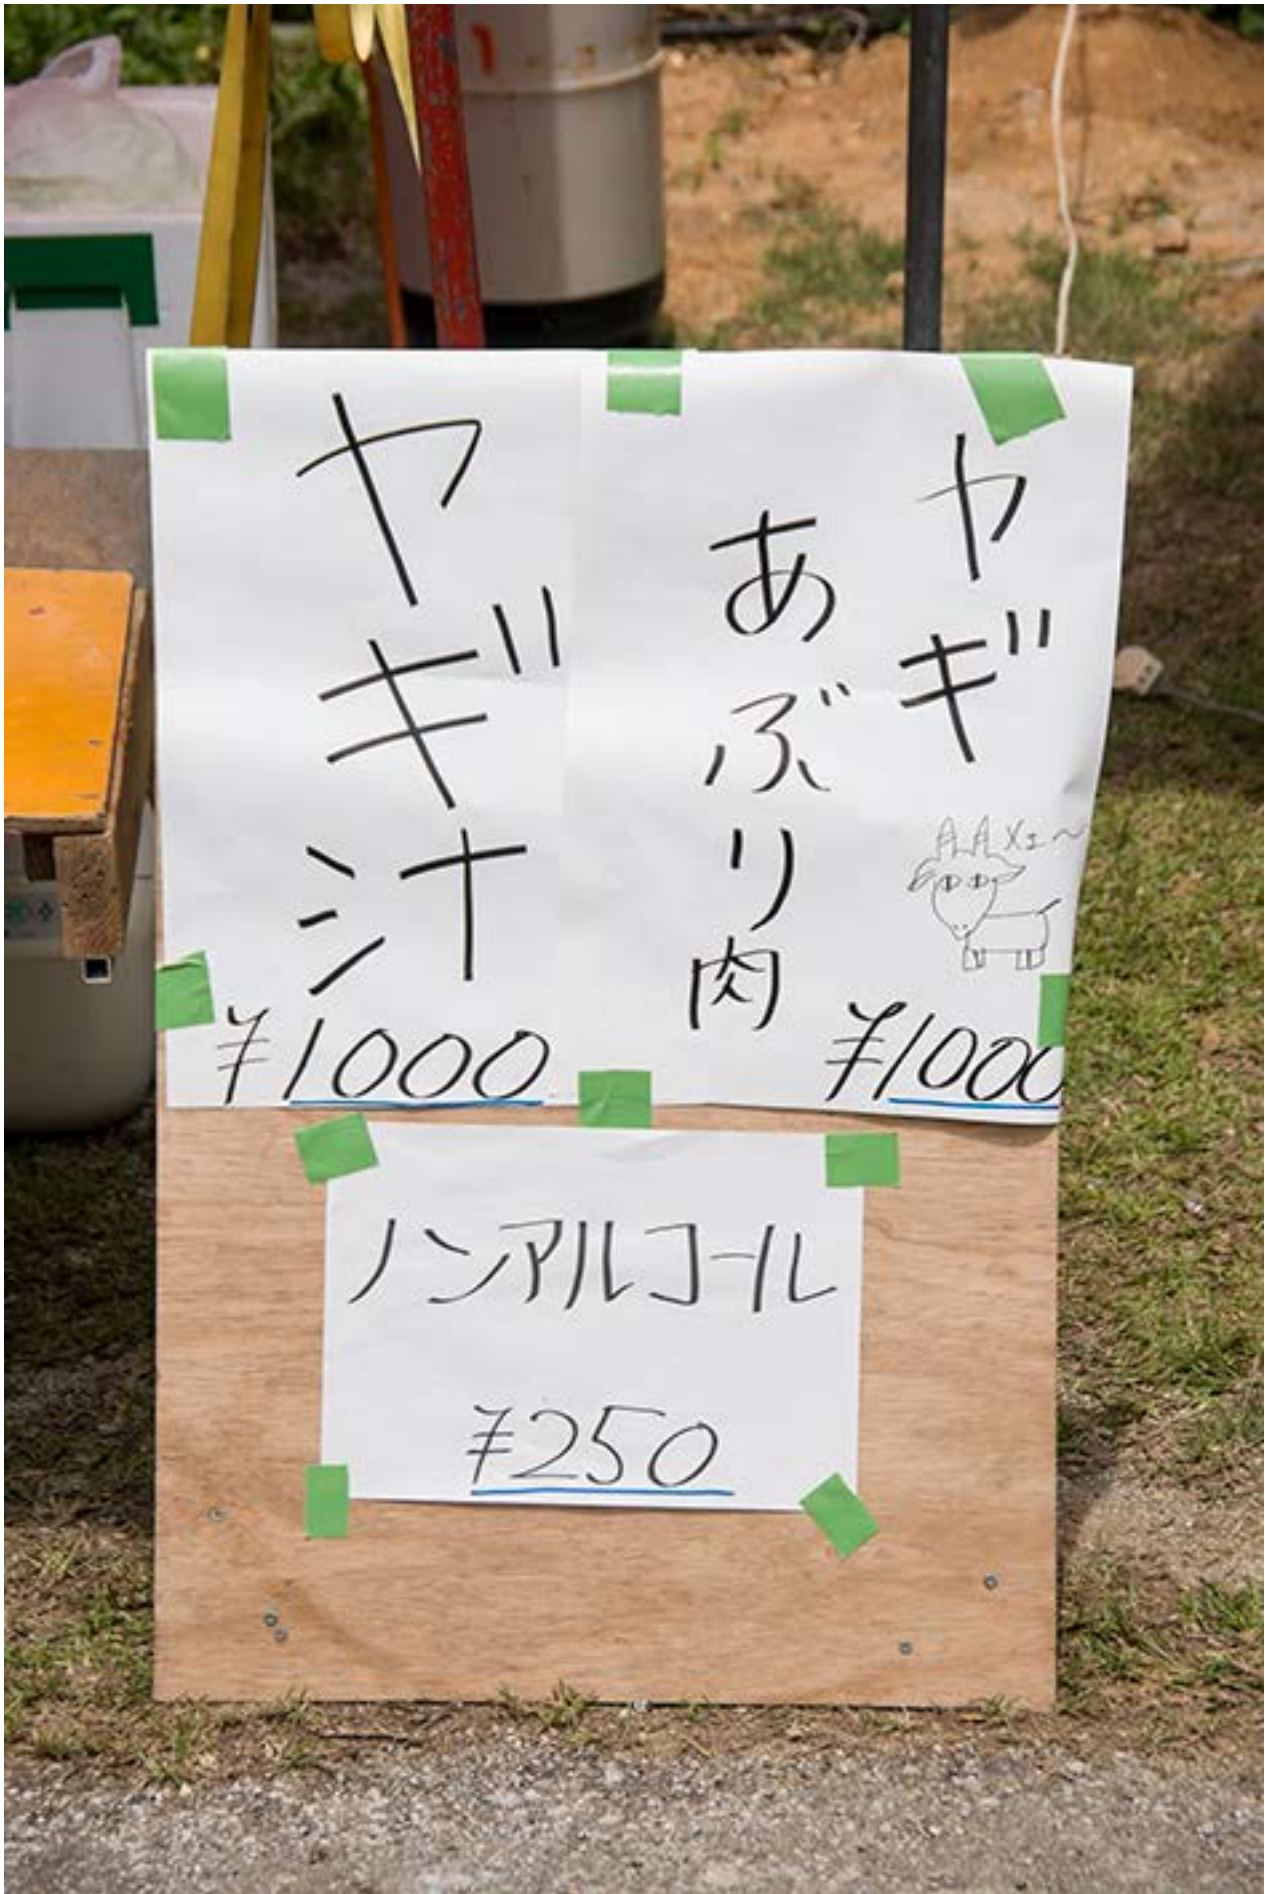 ヤギ
あぶり肉
メェ〜
¥1000
ヤギ汁
¥1000
ノンアルコール
¥250